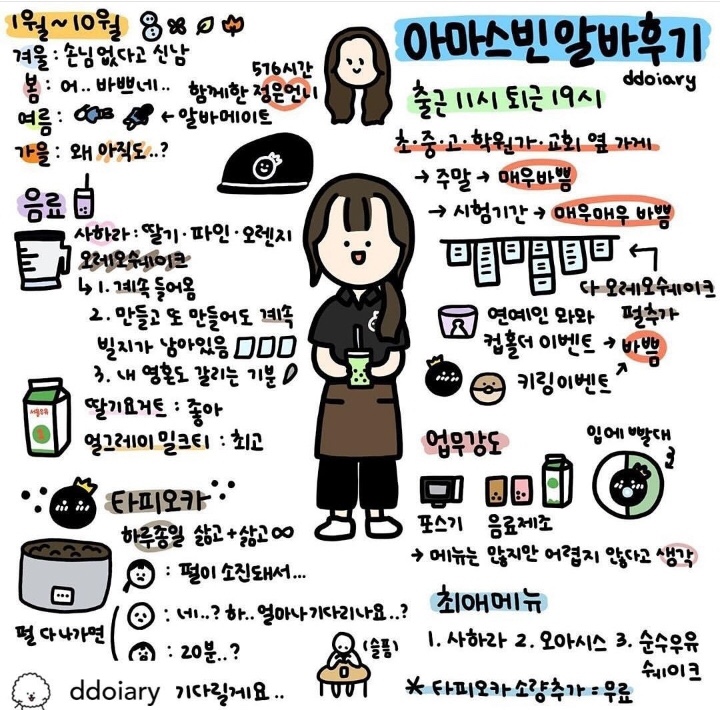 1월~10월
겨울 : 손님 없다고 신남
봄 : 어.. 바쁘네..
여름 : ← 알바메이트
가을 : 왜 아직도..?
576시간
함께한 정은언니
아마스빈 알바후기
ddoiary
출근 11시 퇴근 19시
초·중·고·학원가·교회 옆 가게
→ 주말 → 매우바쁨
→ 시험기간 → 매우매우 바쁨
다 오레오쉐이크
펄추가
연예인 와와
컵홀더 이벤트 → 바쁨
키링이벤트
음료
사하라 : 딸기·파인·오렌지
오레오쉐이크
↳ 1. 계속 들어옴
2. 만들고 또 만들어도 계속
빌지가 남아있음
3. 내 영혼도 갈리는 기분
서울우유
딸기요거트 : 좋아
얼그레이 밀크티 : 최고
업무강도
입에 빨대
포스기 음료제조
→ 메뉴는 많지만 어렵지 않다고 생각
타피오카
하루종일 삶고+삶고∞
펄 다 나가면
: 펄이 소진돼서...
: 네..? 하.. 얼마나 기다리나요..?
: 20분..?
기다릴게요..
(슬픔)
최애메뉴
1. 사하라 2. 오아시스 3. 순수우유
쉐이크
* 타피오카 소량추가 = 무료
ddoiary